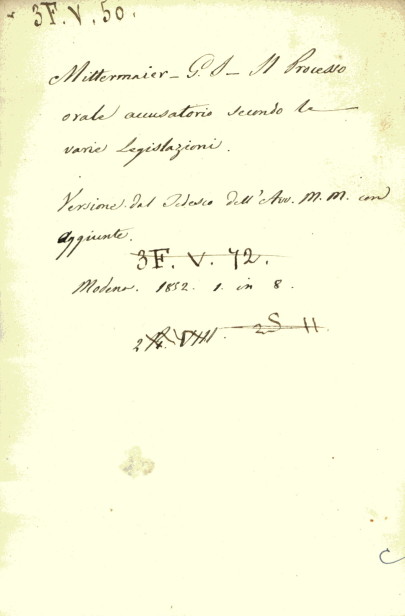 3F. V. 50.
Mittermaier - G. S - Il Processo
orale accusatorio secondo le
varie Legislazioni.
Versione dal Tedesco dell'Avv. M. M. con
aggiunte.
3F. V. 72.
Modena. 1852. 1. in 8.
2 S 11